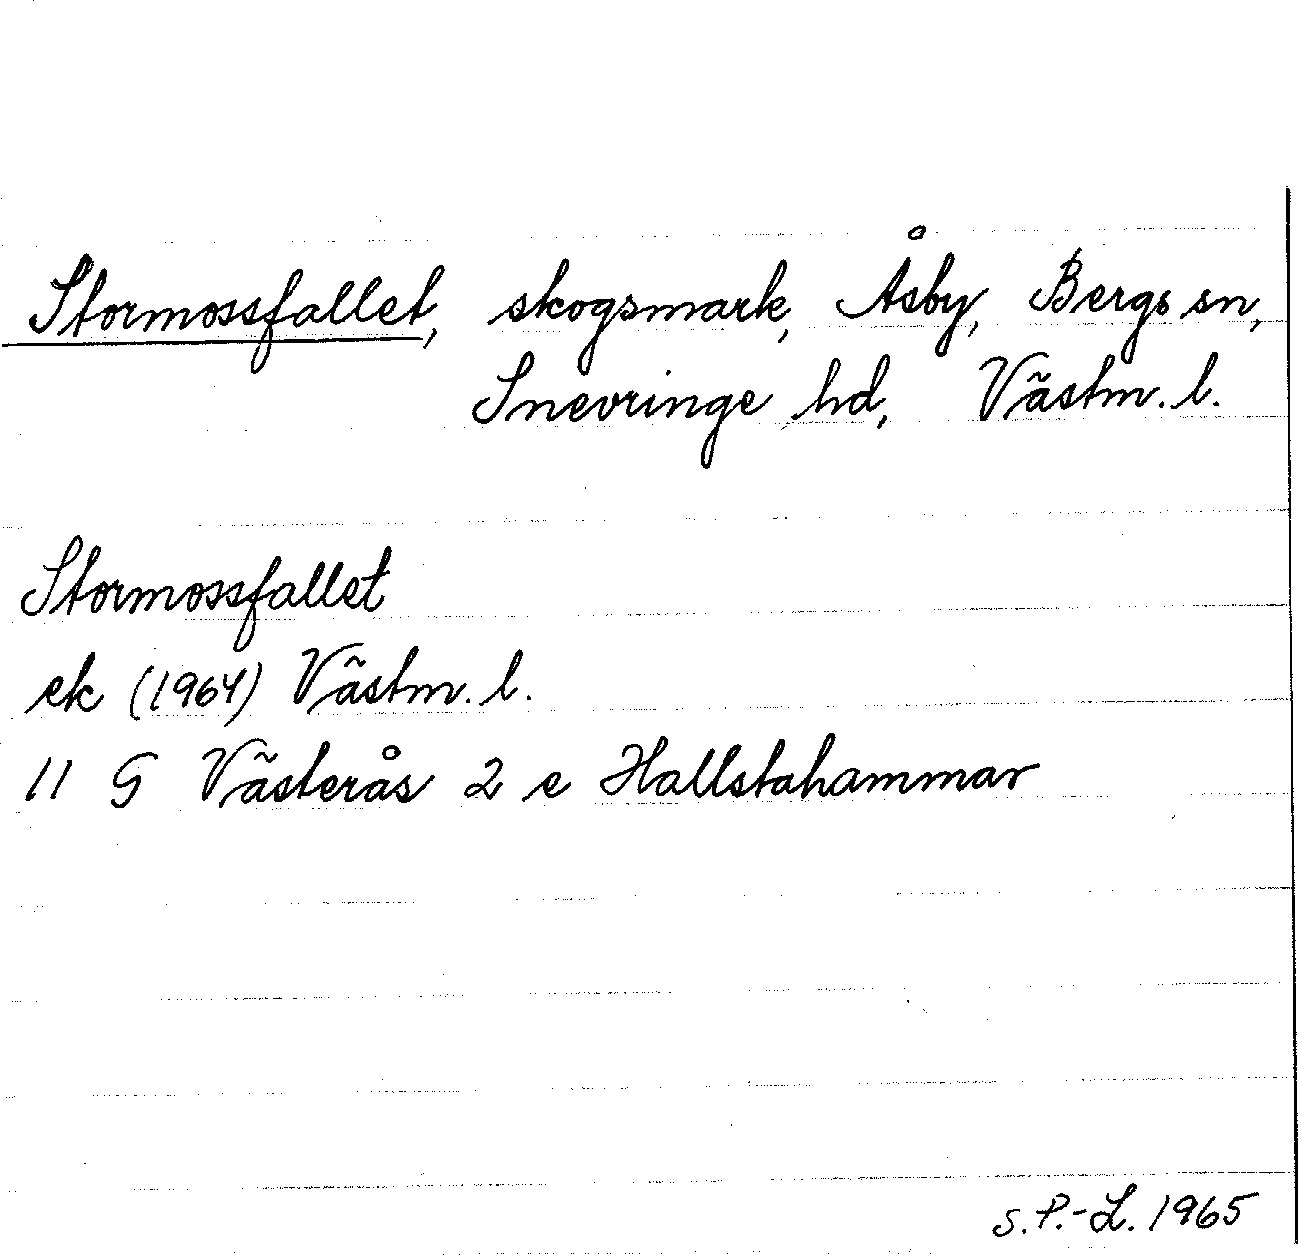 Stormossfallet, skogsmark, Åsby, Bergs sn,
Snevringe hd, Västm. l.
Stormossfallet
ek (1964) Västm. l.
11 G Västerås 2 e Hallstahammar
S.P.-L. 1965